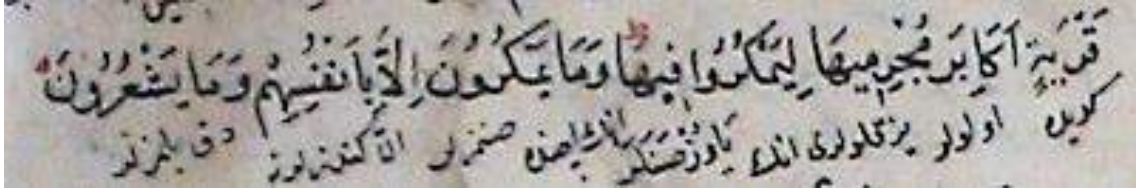 قَرْيَةٍ اَكَابِرَ مُجْرِمِيهَا لِيَمْكُرُوا فِيهَا وَمَا يَمْكُرُونَ اِلَّا بِاَنْفُسِهِمْ وَمَا يَشْعُرُونَ
اولولر يزقلولرى انده ياوز صنمزلر الا كندوزلرنه دقى بلمزلر